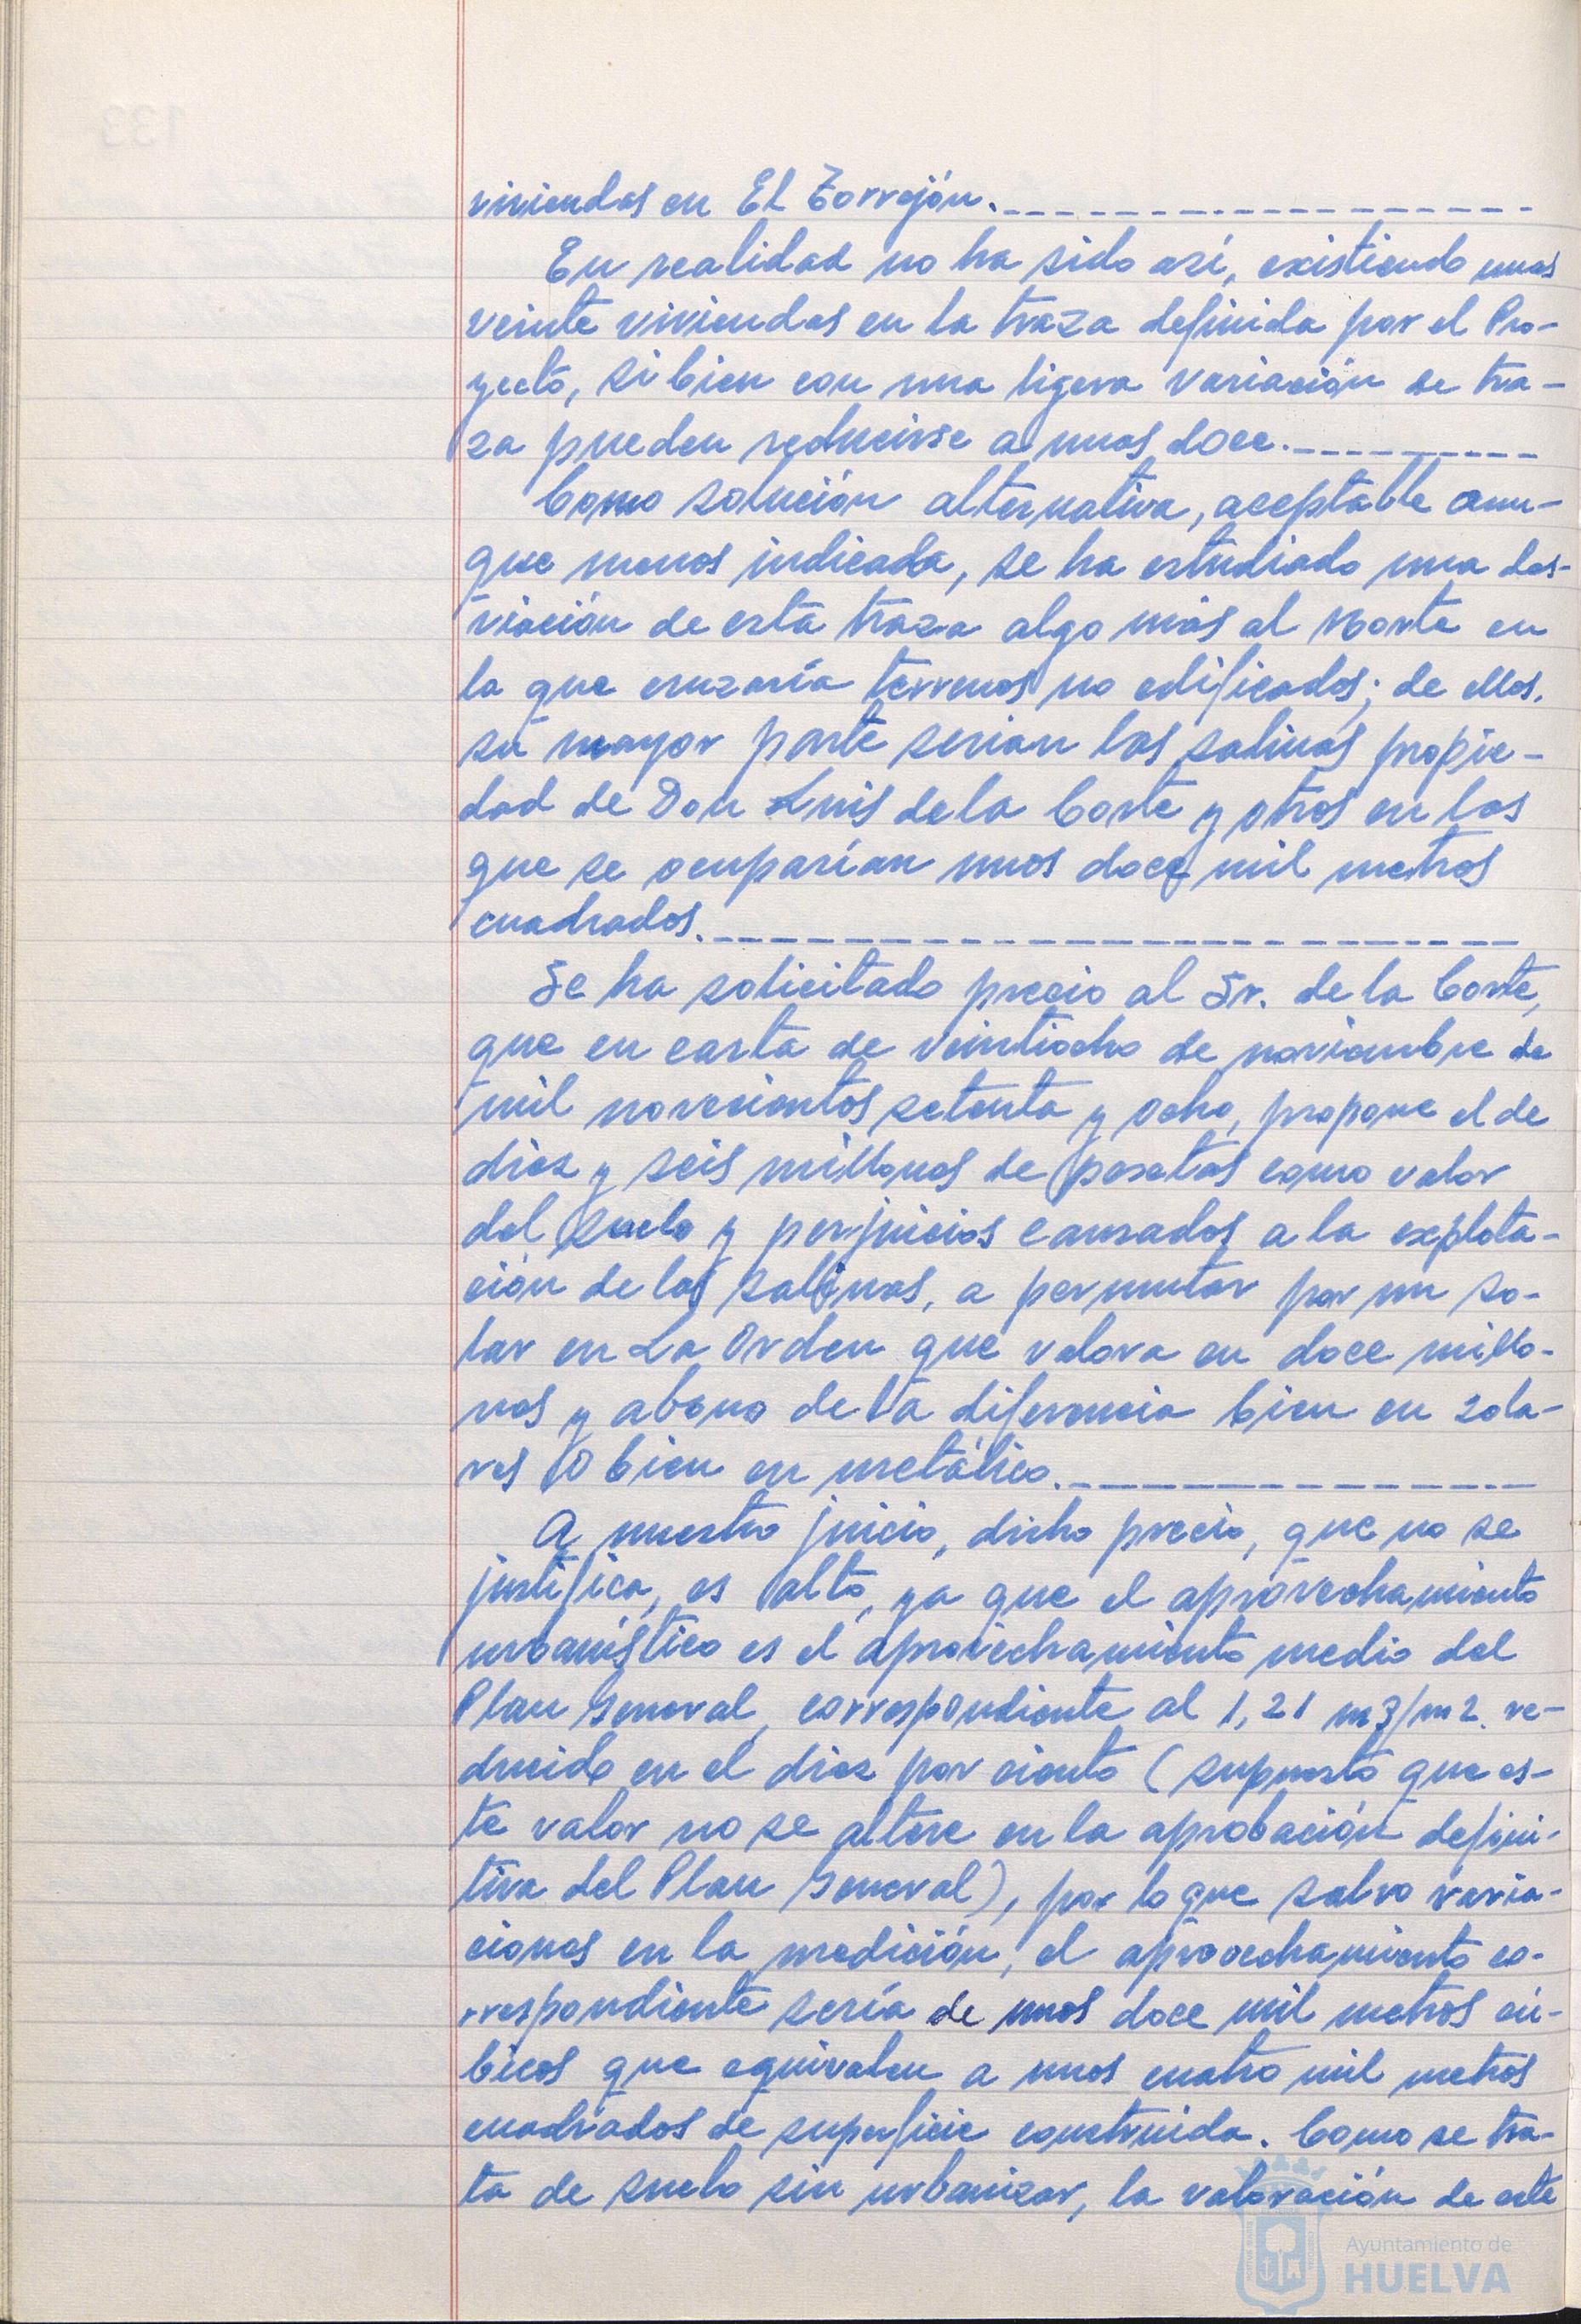 viviendas en El Torrejón.
En realidad no ha sido así, existiendo unas
veinte viviendas en la traza definida por el Pro-
yecto, si bien con una ligera variación de tra-
za pueden reducirse a unas doce.
Como solución alternativa, aceptable aun-
que menos indicada, se ha estudiado una des-
viación de esta traza algo más al Norte en
la que cruzaría terrenos no edificados; de ellos,
su mayor parte serian las salinas propie-
dad de Don Luis de la Corte y otros en los
que se ocuparían unos doce mil metros
cuadrados.
Se ha solicitado precio al Sr. de la Corte,
que en carta de veintiocho de noviembre de
mil novecientos setenta y ocho, propone el de
diez y seis millones de pesetas como valor
del suelo y perjuicios causados a la explota-
ción de las salinas, a permutar por un so-
lar en La Orden que valora en doce millo-
nes y abono de la diferencia bien en sola-
res o bien en metálico.
A nuestro juicio, dicho precio, que no se
justifica, es alto, ya que el aprovechamiento
urbanístico es el aprovechamiento medio del
Plan General, correspondiente al 1,21 m3/m2. re-
ducido en el diez por ciento (supuesto que es-
te valor no se altere en la aprobación defini-
tiva del Plan General), por lo que salvo varia-
ciones en la medición, el aprovechamiento co-
rrespondiente sería de unos doce mil metros cú-
bicos que equivalen a unos cuatro mil metros
cuadrados de superficie construida. Como se tra-
ta de suelo sin urbanizar, la valoración de este
Ayuntamiento de
HUELVA